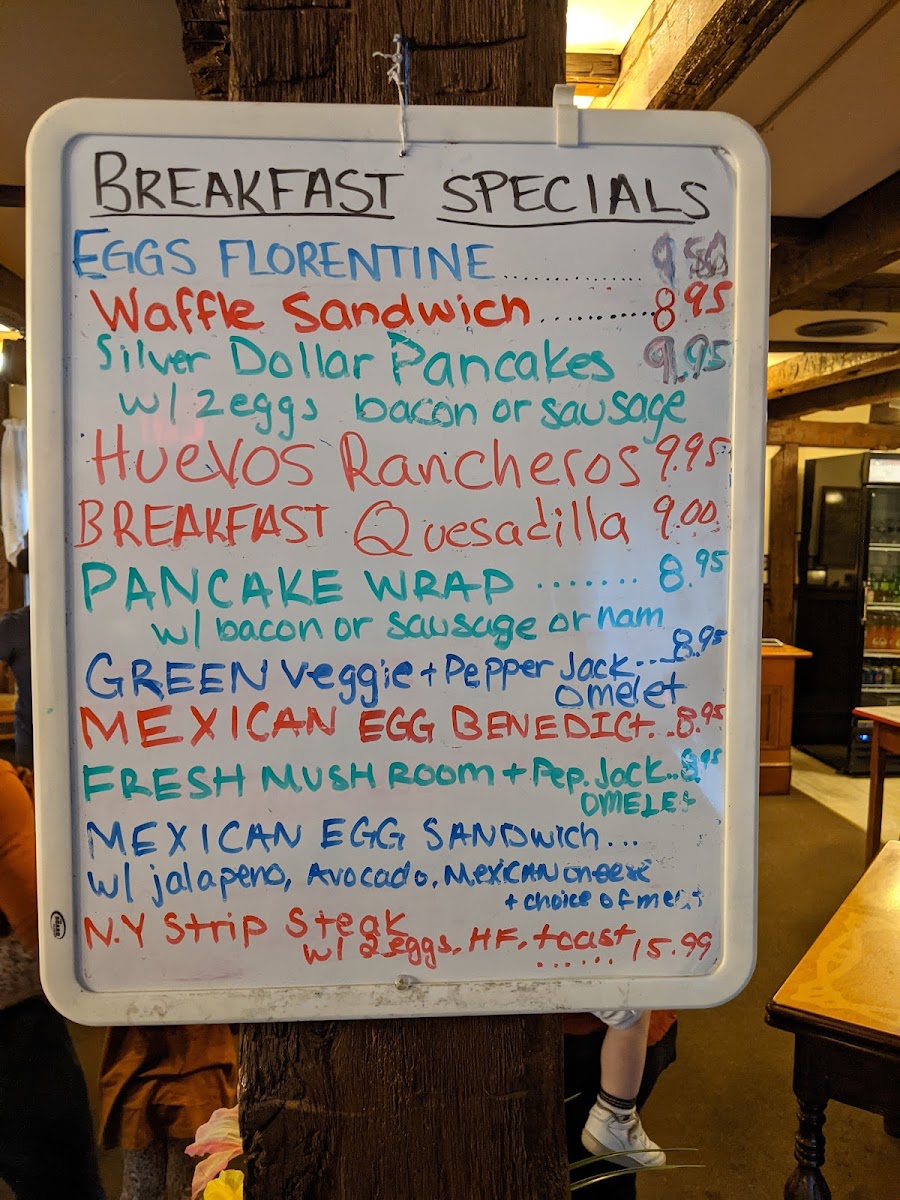 BREAKFAST SPECIALS
EGGS FLORENTINE.............. 9.50
Waffle Sandwich ..........8.95
Silver Dollar Pancakes 9.95
w/ 2 eggs bacon or sausage
Huevos Rancheros 9.95
BREAKFAST Quesadilla 9.00
PANCAKE WRAP ....... 8.95
w/ bacon or sausage or ham
GREEN Veggie + Pepper Jack....8.95
Omelet
MEXICAN EGG BENEDICT..8.95
FRESH MUSHROOM + Pep. Jack..8.95
OMELET
MEXICAN EGG SANDwich...
w/ jalapeno, Avocado, Mexican cheese
+ choice of meat
N.Y Strip Steak
w/ 2 eggs, HF, toast
...... 15.99